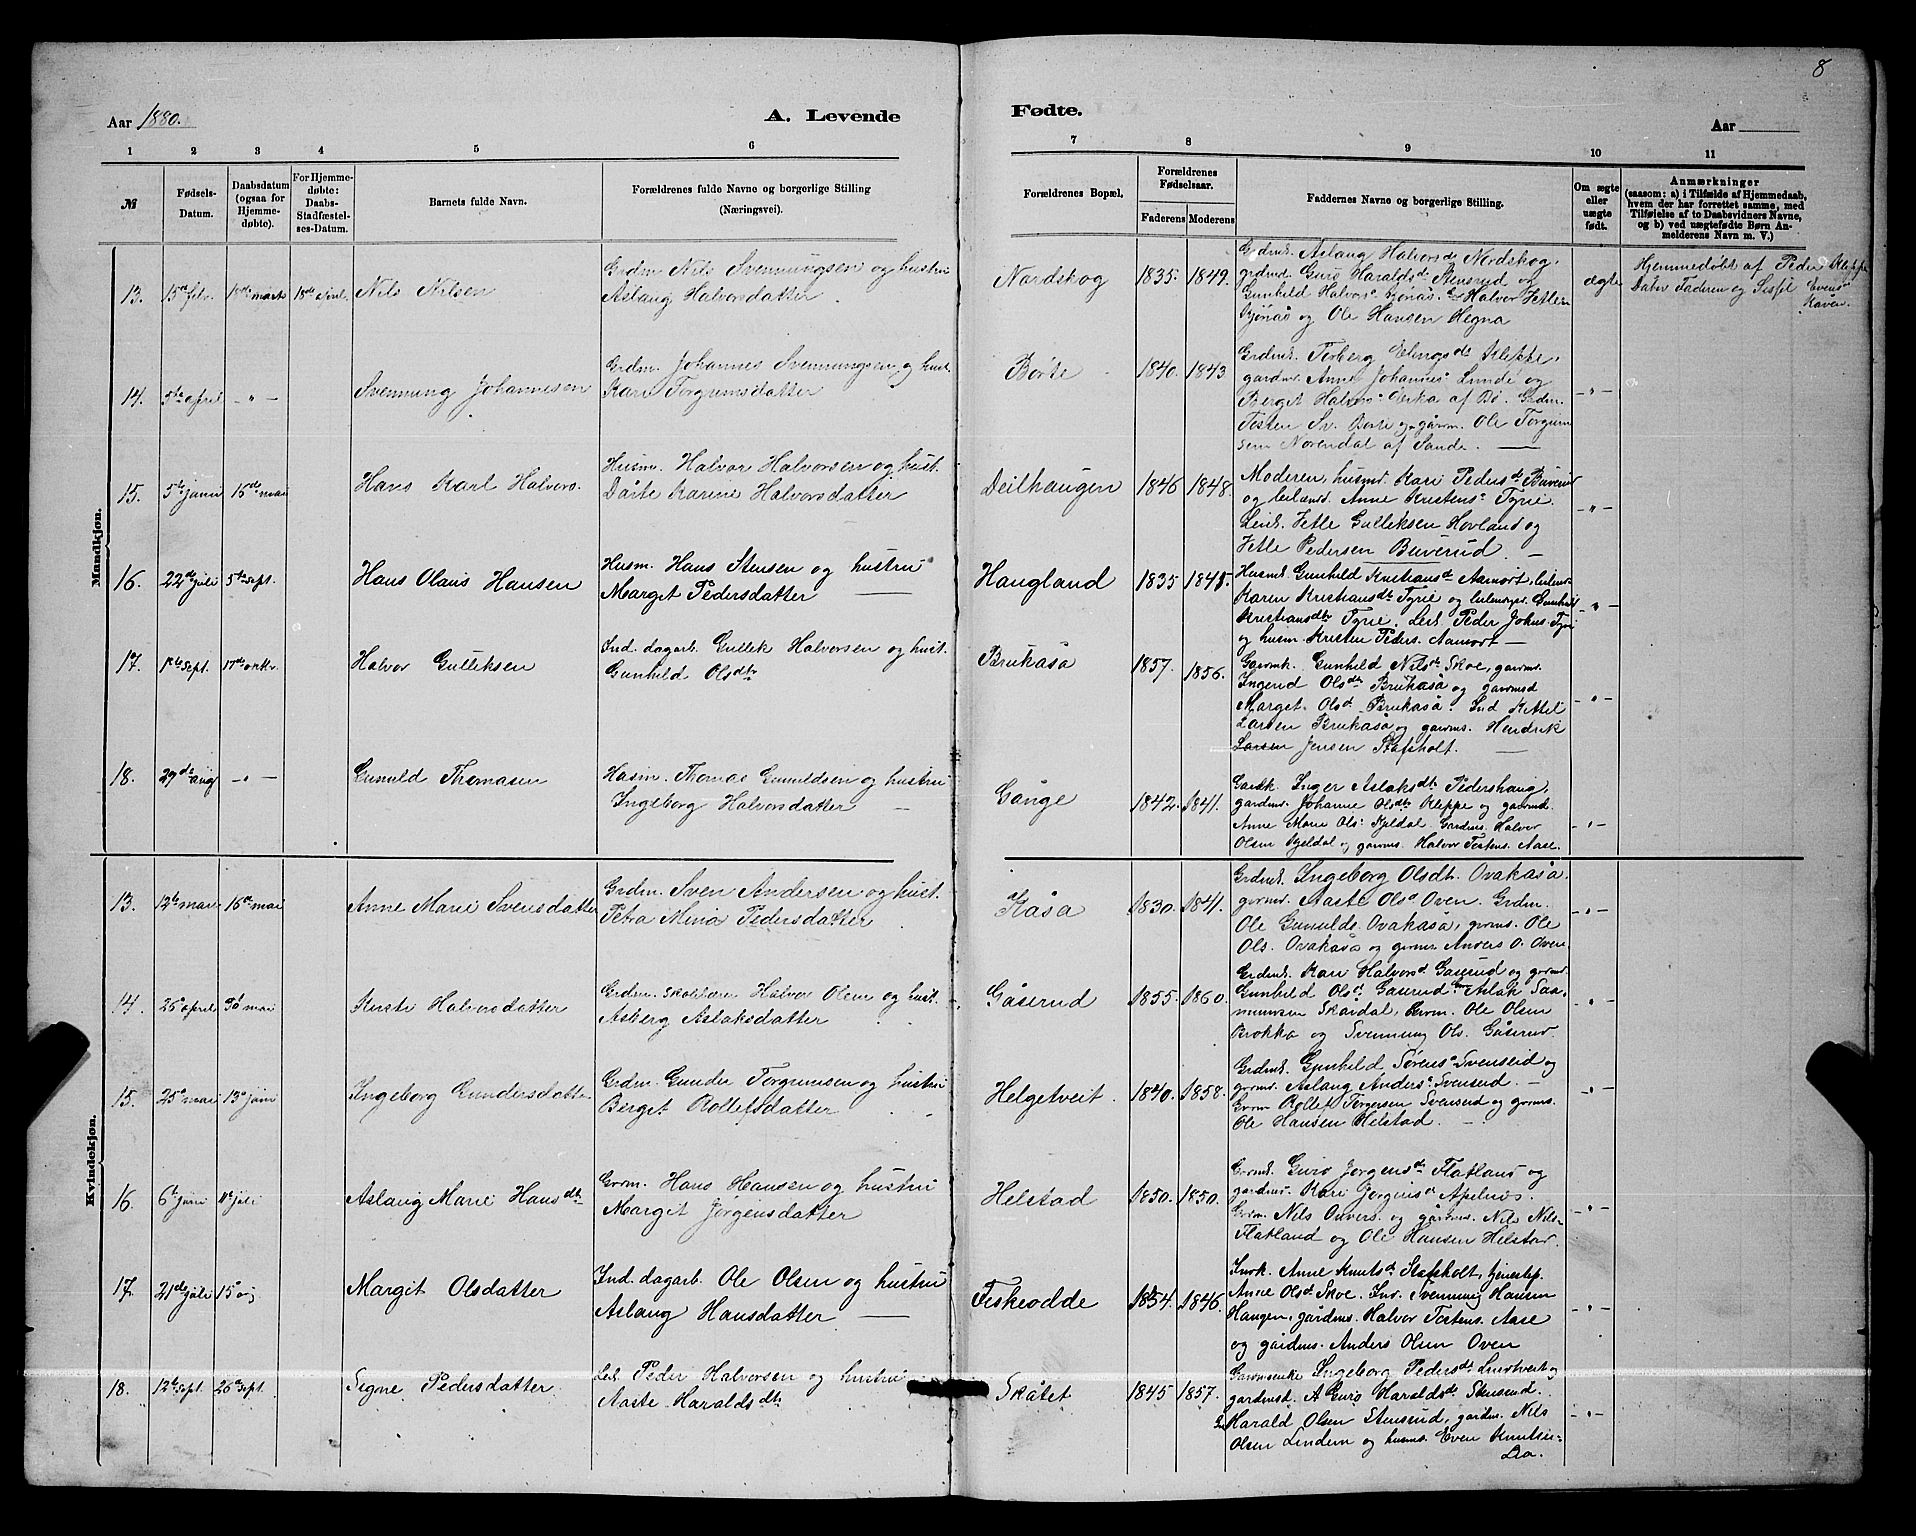 8
Aar 1880.
A. Levende
Fødte.
Aar
1 2 3 4 5 6 7 8 9 10 11
№
Fødsels-
Datum.
Daabsdatum
(ogsaa for
Hjemme-
døbte).
For Hjemme-
døbte:
Daabs-
Stadfæstel-
ses-Datum.
Barnets fulde Navn.
Forældrenes fulde Navne og borgerlige Stilling
(Næringsvei).
Forældrenes Bopæl.
Forældrenes
Fødselsaar.
Faderens Moderens
Faddernes Navne og borgerlige Stilling.
Om ægte
eller
uægte
født.
Anmærkninger
(saasom: a) i Tilfælde af Hjemmedaab,
hvem der har forrettet samme, med
Tilføielse af to Daabsvidners Navne,
og b) ved uægtefødte Børn An-
melderens Navn m. V.)
Mandkjøn.
13. 15de febr. marts 18de april Nils Nilsen
Grdm. Nils Svennungsen og hustru
Aslaug Halvorsdatter.
Nordskog 1835. 1849.
Grdmk. Aslaug Halvorsds Nordskog,
grdmk Guro Haraldsd. Stensrud og
Gunhild Halvors. Halvor Jetle-
og Ole Hansen Hegna
ægte
Hjemmedøbt af Peder Kleppe
Faderen og
14. 5te april -"- Svennung Johannesen
Grdm. Johannes Svennungsen og hust.
Kari Torgrimsdatter
Børte 1840. 1843.
Grdmk. Torberg Kleppe,
gardmk. Anne Johannesd Lunde og
Berget Halvorsd af Bø. Grdm.
Tosten Sv. Børte og gårm. Ole Torgrim
sen Norendal af Sande.
-"-
15. 5te juni mai Hans Karl Halvors.
Husm. Halvor Halvorsen og hust.
Dårte Karine Halvorsdatter
Deilhaugen 1846 1848.
Moderen, husmk. Kari Pedersd. Buverud
og Anne Kristensd Tyrie.
Jetle Gulliksen Hovland og
Jetle Pedersen Buverud.
-"-
16. 22de juli 5te sept. Hans Olaus Hansen
Husm. Hans Stensen og hustru
Marget Pedersdatter
Haugland 1835
Husmk. Gunhild Kristiansdt. Aamot,
Karen Kristiansdtr Tyrie og Gunhild
Kristiansdtr Tyrie. Leil. Peder Johns. Tyri
og husm. Kristen Peders. Aamot
-"-
17. sept. 17de Halvor Gulliksen
Ind. dagarb. Gullek Halvorsen og hust.
Gunhild Olsdtr
Brukåså 1857. 1856.
Gaarmk. Gunhild Nilsd. Skoe, gaarmd.
Ingerid Olsdt. Brukåså og gaarmd
Marget Olsd. Brukåså. Ind Kittil
Larsen Brukåså og gaarms. Hendrik
Larsen Jensen Stafsholt.
-"-
18. 29de aug -"- Gunuld Thomasen
Husm. Thomas Gunuldsen og hustru
Ingeborg Halvorsdatter
Gånge 1842. 1841.
Gardk. Inger Aslaksdt. Pedershaug,
gardmd. Johanne Olsdtr Kleppe og gaarmd.
Anne Marie Ols. Kjeldal. Gardms. Halvor
Olsen Kjeldal og gaarms. Halvor Tostens. Aase.
-"-
Kvindekjøn.
13. 12te mars 16de mai Anne Marie Svensdatter
Grdm. Sven Andersen og hust.
Petra Mina Pedersdatter
Kåsa 1830. 1841.
Grdmk. Ingeborg Olsdt. Ovakåsa.
gormd. Aaste Olsd Oven. Grdm.
Ole Gunulds. Ovakåsa, gorms. Ole
Ols. Ovakåsa og gorms. Anders O. Oven
-"-
14. 26de april mai Kirsti Halvorsdatter
Grdm. skolelærer Halvor Olsen og hust.
Asberg Aslaksdatter
Gåserud 1855. 1860.
Grdmk. Kari Halvorsd. Gaserud og gormd.
Gunhild Olsd. Gaserud. Aslak Saa-
mundsen Skårdal, Gorm. Ole Olsen
Brokka og Svennung Ols. Gåserud
-"-
15. 25de mai 13de juni Ingeborg Gundersdatter
Grdm. Gunder Torgrimsen og hustru
Berget Rollefsdatter
Helgetveit 1840. 1858.
Grdmk. Gunhild Sørensd Svenseid og
gormd. Aslaug Andersd. Svenseid.
Gorm Rollef Torgersen Svenseid og gorms.
Ole Hansen Helstad.
-"-
16. 6te juni juli Aslaug Marie Hansdtr.
Gorm. Hans Hansen og hustru
Marget Jørgensdatter
Helstad 1850. 1850.
Gormk. Guro Jørgensdt. Flatland og
gardmd. Kari Jørgensd Apelnes.
Gorm. Nils og gårms. Nils Nils-
Flatland og Ole Hansen Helstad.
-"-
17. 21de juli 15de aug Margit Olsdatter
Ind. dagarb. Ole Olsen og hustru
Aslaug Hansdatter
Fiskeodde 1854. 1846.
Indk. Anne Knutsdt. Stafsholt, tjenestep.
Anne Olsd. Skoe. Ind. Svennung Hansen
Haugen, gårdms. Halvor Tostens. Aase
og gårdms. Anders Olsen Oven
-"-
18. 12te sept. 26de sept. Signe Pedersdatter
Leil. Peder Halvorsen og hustru
Aaste Haraldsdtr
Skåtet 1845 1857.
Gaarmenke Ingeborg Pedersdt. og
gardmd. A Guro Haraldsd. Stensrud.
Harald Olsen Stensrud, gardms. Nils
Olsen Lindem og husms. Even Knutsen
Lia.
-"-